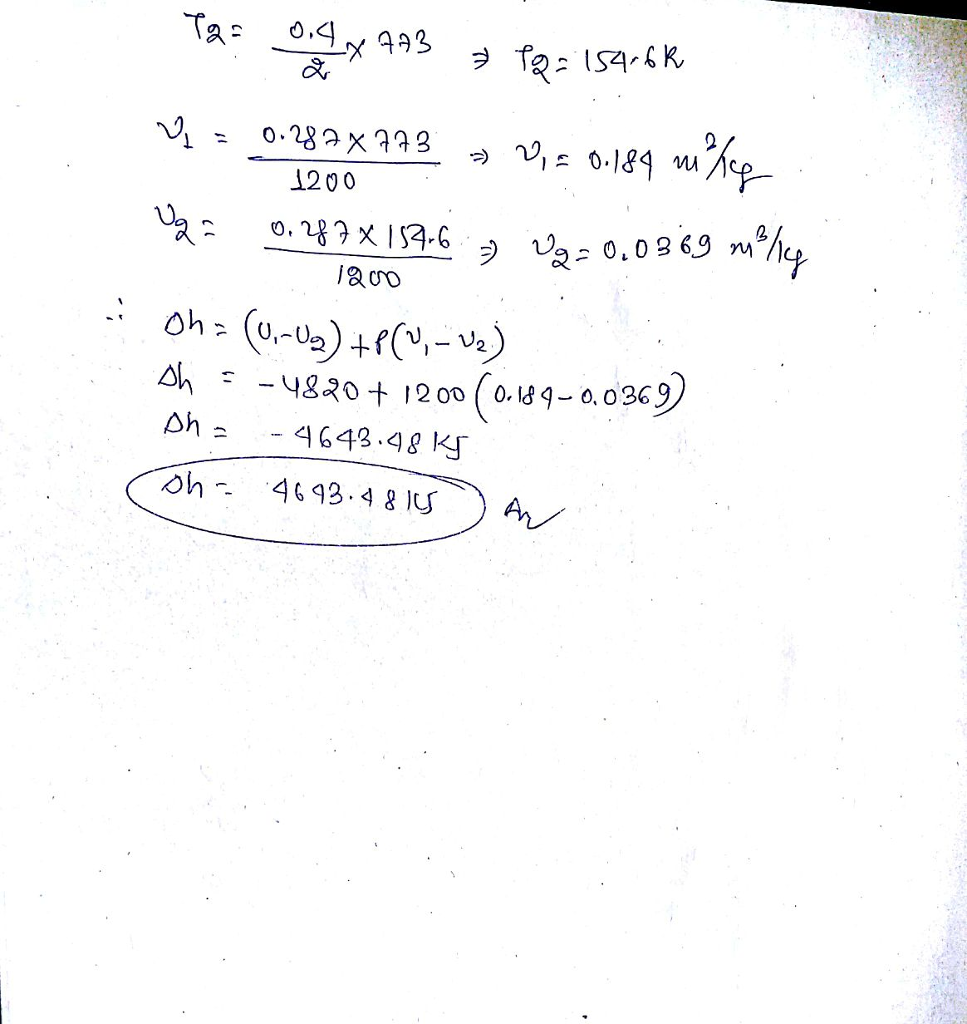 T2 = 0.4/2 × 773 ⇒ T2 = 154.6K
v1 = 0.287 × 773 / 1200 ⇒ v1 = 0.184 m3/kg
v2 = 0.287 × 154.6 / 1200 ⇒ v2 = 0.0369 m3/kg
∴ Δh = (U1-U2) + P(v1 - v2)
Δh = -4820 + 1200 (0.184 - 0.0369)
Δh = - 4643.48 KJ
Δh = 4643.48 KJ Ans